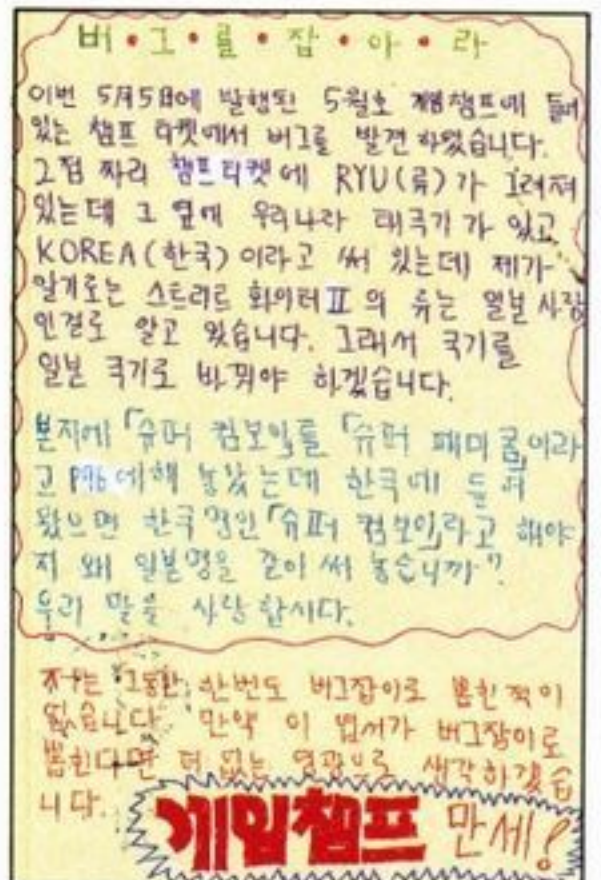 버•그•를•잡•아•라
이번 5月5日에 발행된 5월호 게임챔프에 들어
있는 챔프 티켓에서 버그를 발견 하였습니다.
2점 짜리 챔프티켓에 RYU(류)가 그려져
있는데 그 옆에 우리나라 태극기가 있고
KOREA(한국)이라고 써 있는데 제가
알기로는 스트리트 화이터Ⅱ의 류는 일본 사람
인걸로 알고 있습니다. 그래서 국기를
일본 국기로 바꿔야 하겠습니다.
본지에「슈퍼 컴보이」를「슈퍼 패미콤」이라
고 P96에해 놓았는데 한국에 들어
왔으면 한국명인「슈퍼 컴보이」라고 해야
지 왜 일본명을 같이 써 놓습니까?
우리 말을 사랑합시다.
저는 그동안 한번도 버그잡이로 뽑힌 적이
없습니다. 만약 이 엽서가 버그잡이로
뽑힌다면 더 없는 영광으로 생각하겠습
니다.
게임챔프 만세!